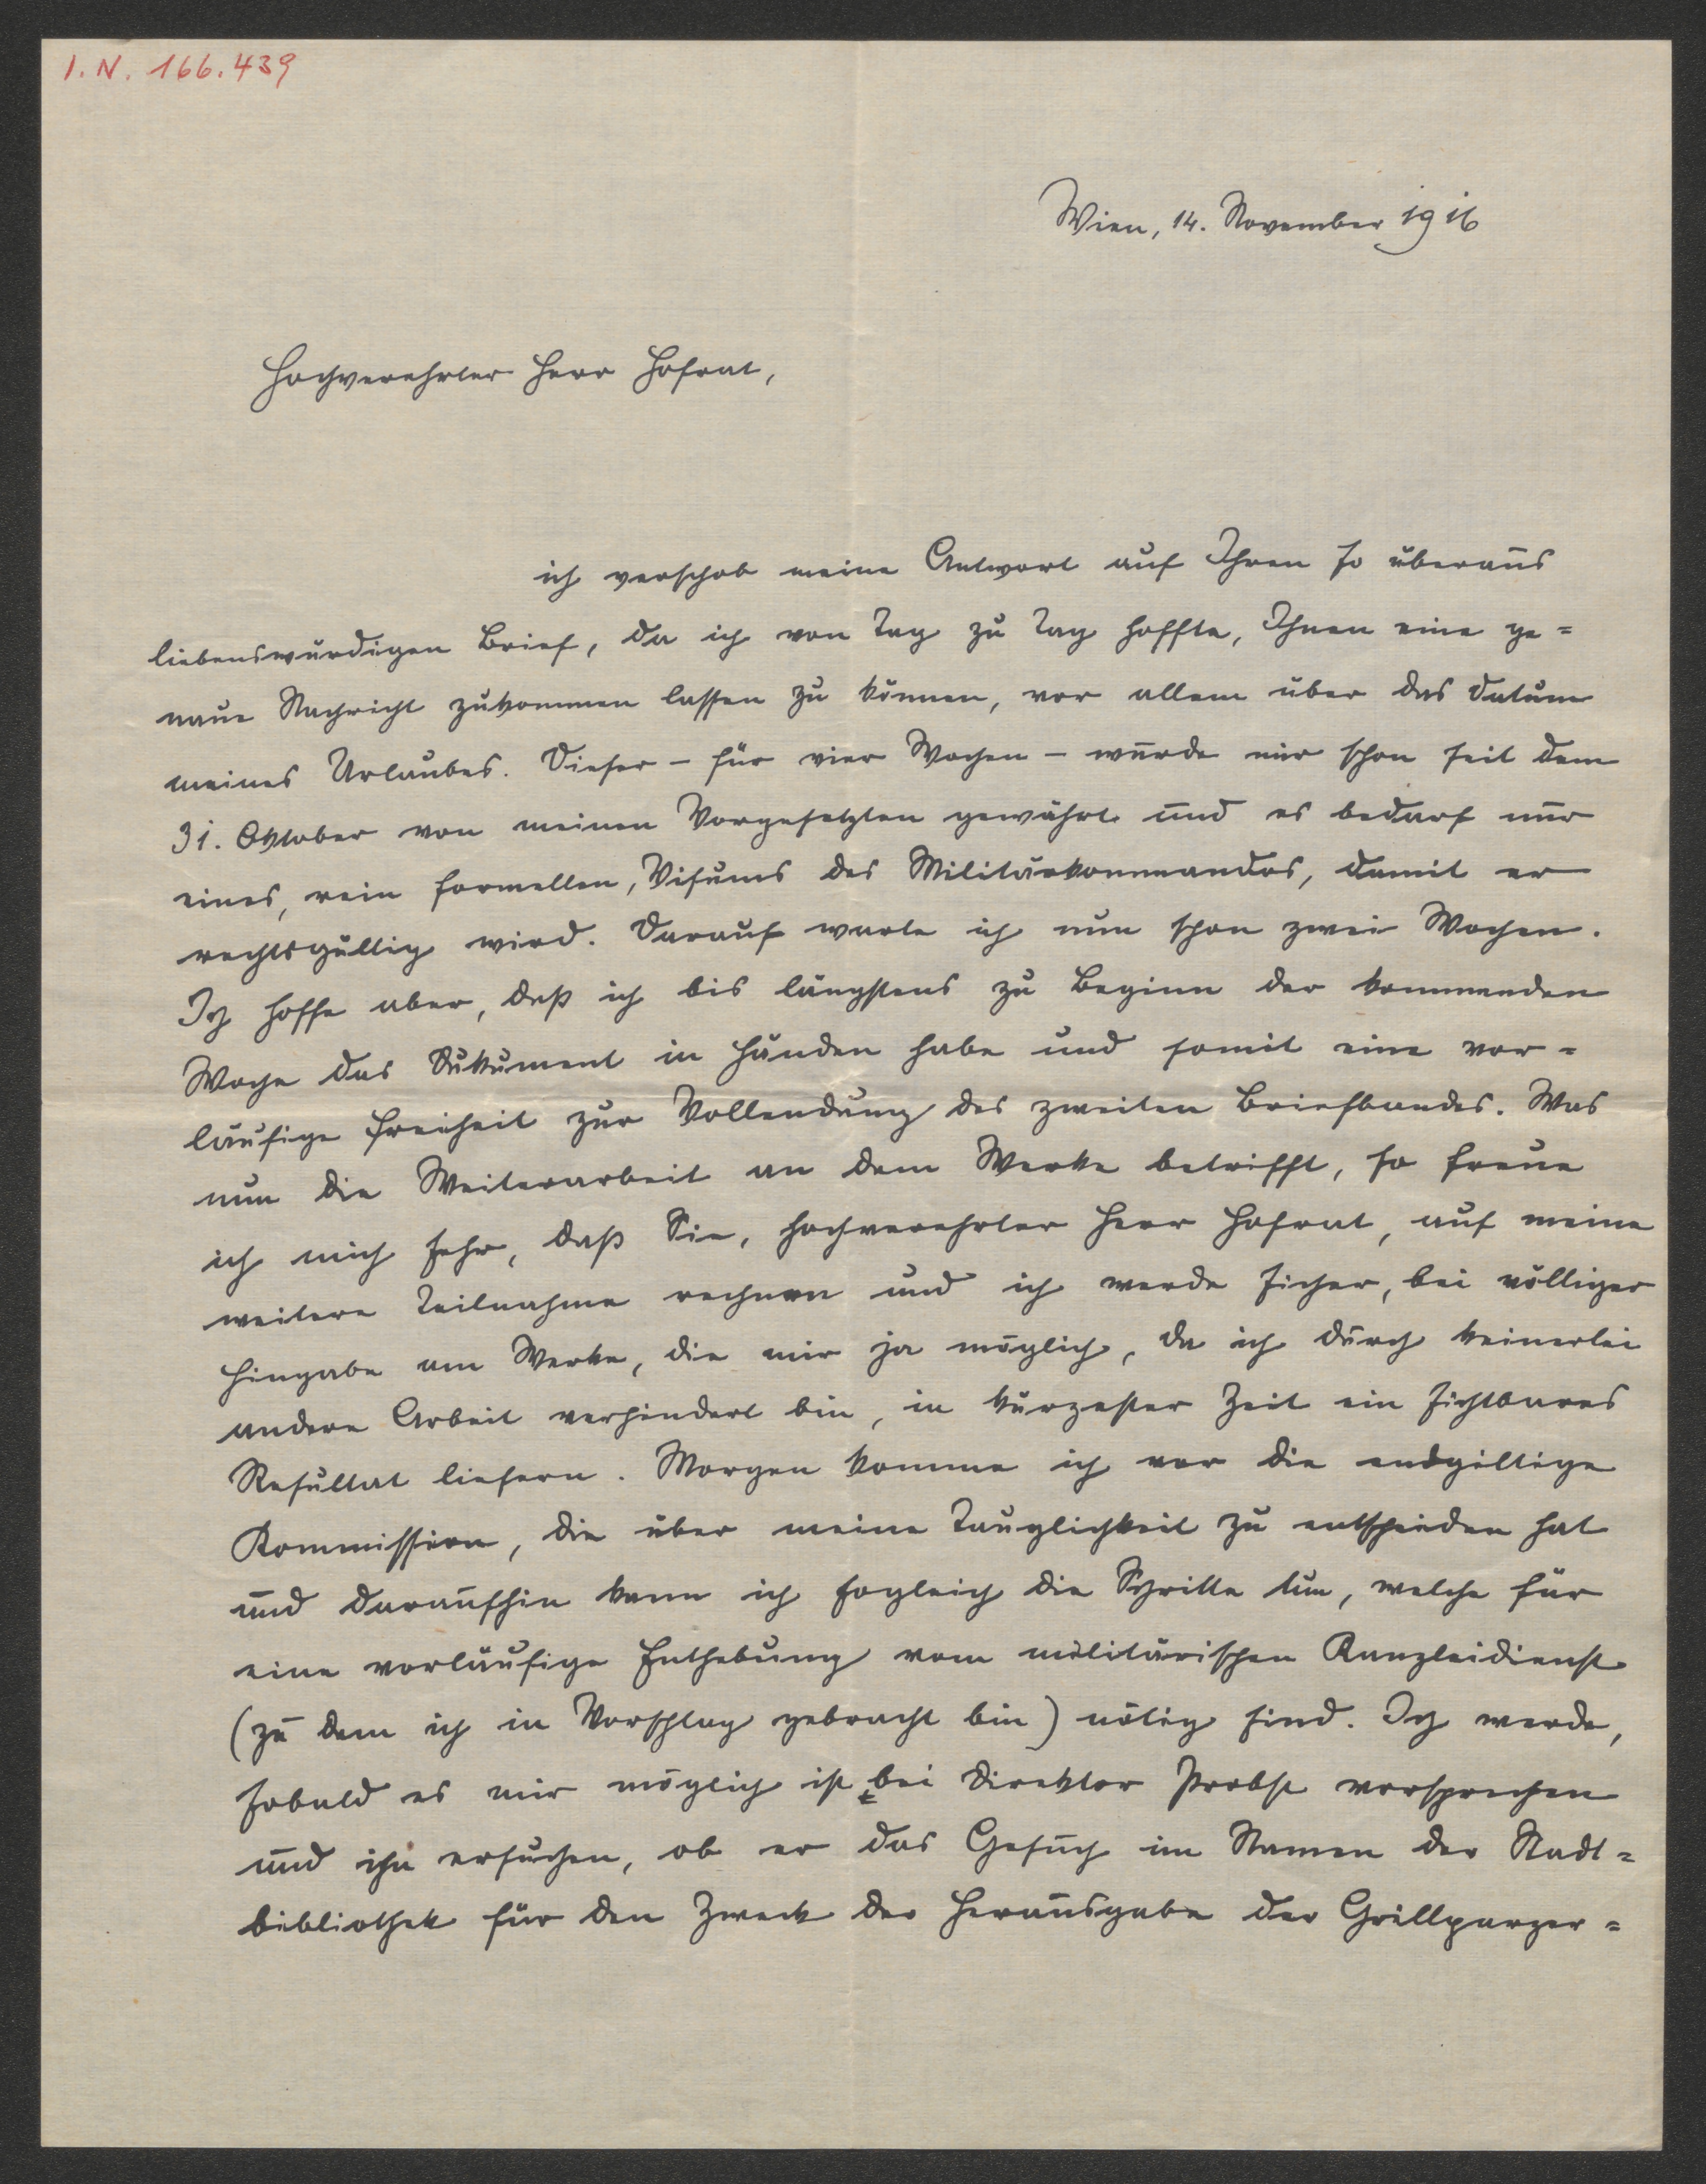 I. N. 166.439
Wien, 14. November 1916
Hochverehrter Herr Hofrat,
ich verschob meine Antwort auf Ihren so überaus
liebenswürdigen Brief, da ich von Tag zu Tag hoffte, Ihnen eine ge=
naue Nachricht zukommen lassen zu können, vor allem über das Datum
meines Urlaubes. Dieser – für vier Wochen – wurde mir schon seit dem
31. Oktober von meinen Vorgesetzten gewährt und es bedarf nur
eines, rein formellen, Visums des Militärkommandos, damit er
rechtsgültig wird. Darauf warte ich nun schon zwei Wochen.
Ich hoffe aber, daß ich bis längstens zu Beginn der kommenden
Woche das Dokument in Händen habe und somit eine vor=
läufige Freiheit zur Vollendung des zweiten Briefbandes. Was
nun die Weiterarbeit an dem Werke betrifft, so freue
ich mich sehr, daß Sie, hochverehrter Herr Hofrat, auf meine
weitere Teilnahme rechnen und ich werde sicher, bei völliger
Hingabe am Werke, die mir ja möglich, da ich durch keinerlei
andere Arbeit verhindert bin, in kürzester Zeit ein sichtbares
Resultat liefern. Morgen komme ich vor die endgiltige
Kommission, die über meine Tauglichkeit zu entscheiden hat
und daraufhin kann ich sogleich die Schritte tun, welche für
eine vorläufige Enthebung vom militärischen Kanzleidienst
(zu dem ich in Vorschlag gebracht bin) nötig sind. Ich werde,
sobald es mir möglich ist, bei Direktor Probst vorsprechen
und ihn ersuchen, ob er das Gesuch im Namen der Stadt=
bibliothek für den Zweck der Herausgabe der Grillparzer=